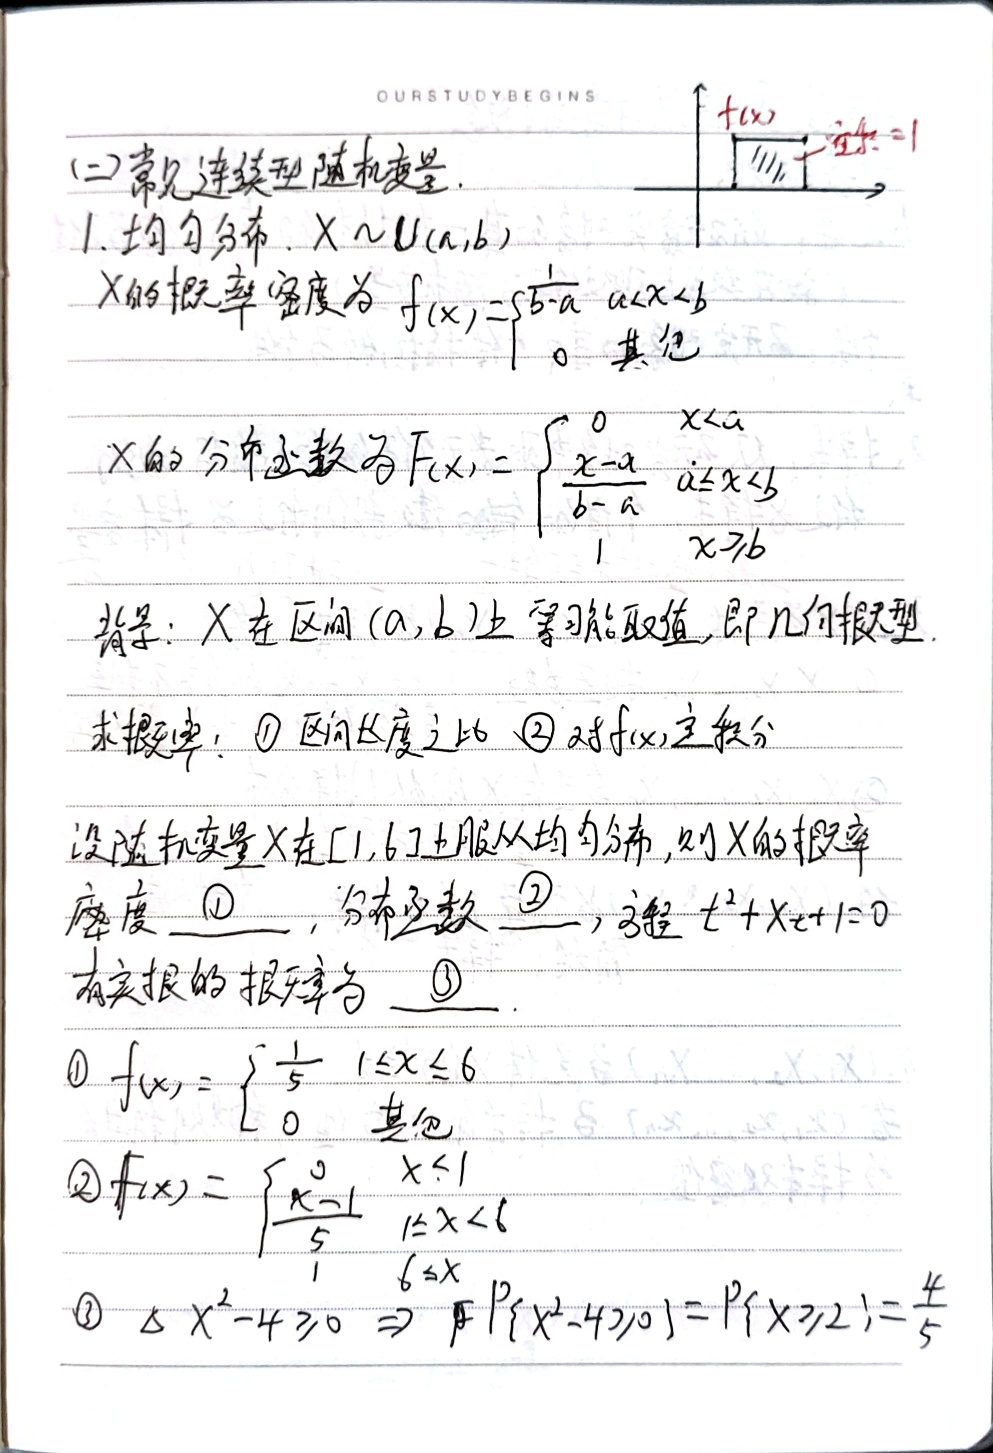 OURSTUDYBEGINS
f(x)
=1
(二)常见连续型随机变量.
1. 均匀分布. X~U(a,b)
X的概率密度为 f(x)={ 1/(b-a) a<x<b
0 其他
X的分布函数为F(x)= { 0 x<a
(x-a)/(b-a) a≤x<b
1 x≥b
背景: X在区间(a,b)上等可能取值,即几何概型.
求概率: ① 区间长度之比 ② 对f(x)定积分
设随机变量X在[1,6]上服从均匀分布,则X的概率
密度 ① , 分布函数 ② , 方程 t²+Xt+1=0
有实根的概率为 ③ .
① f(x)= { 1/5 1≤x≤6
0 其他
② F(x)= { 0 x<1
(x-1)/5 1≤x<6
1 6≤x
③ Δ X²-4≥0 ⇒ P{X²-4≥0}=P{X≥2}=4/5